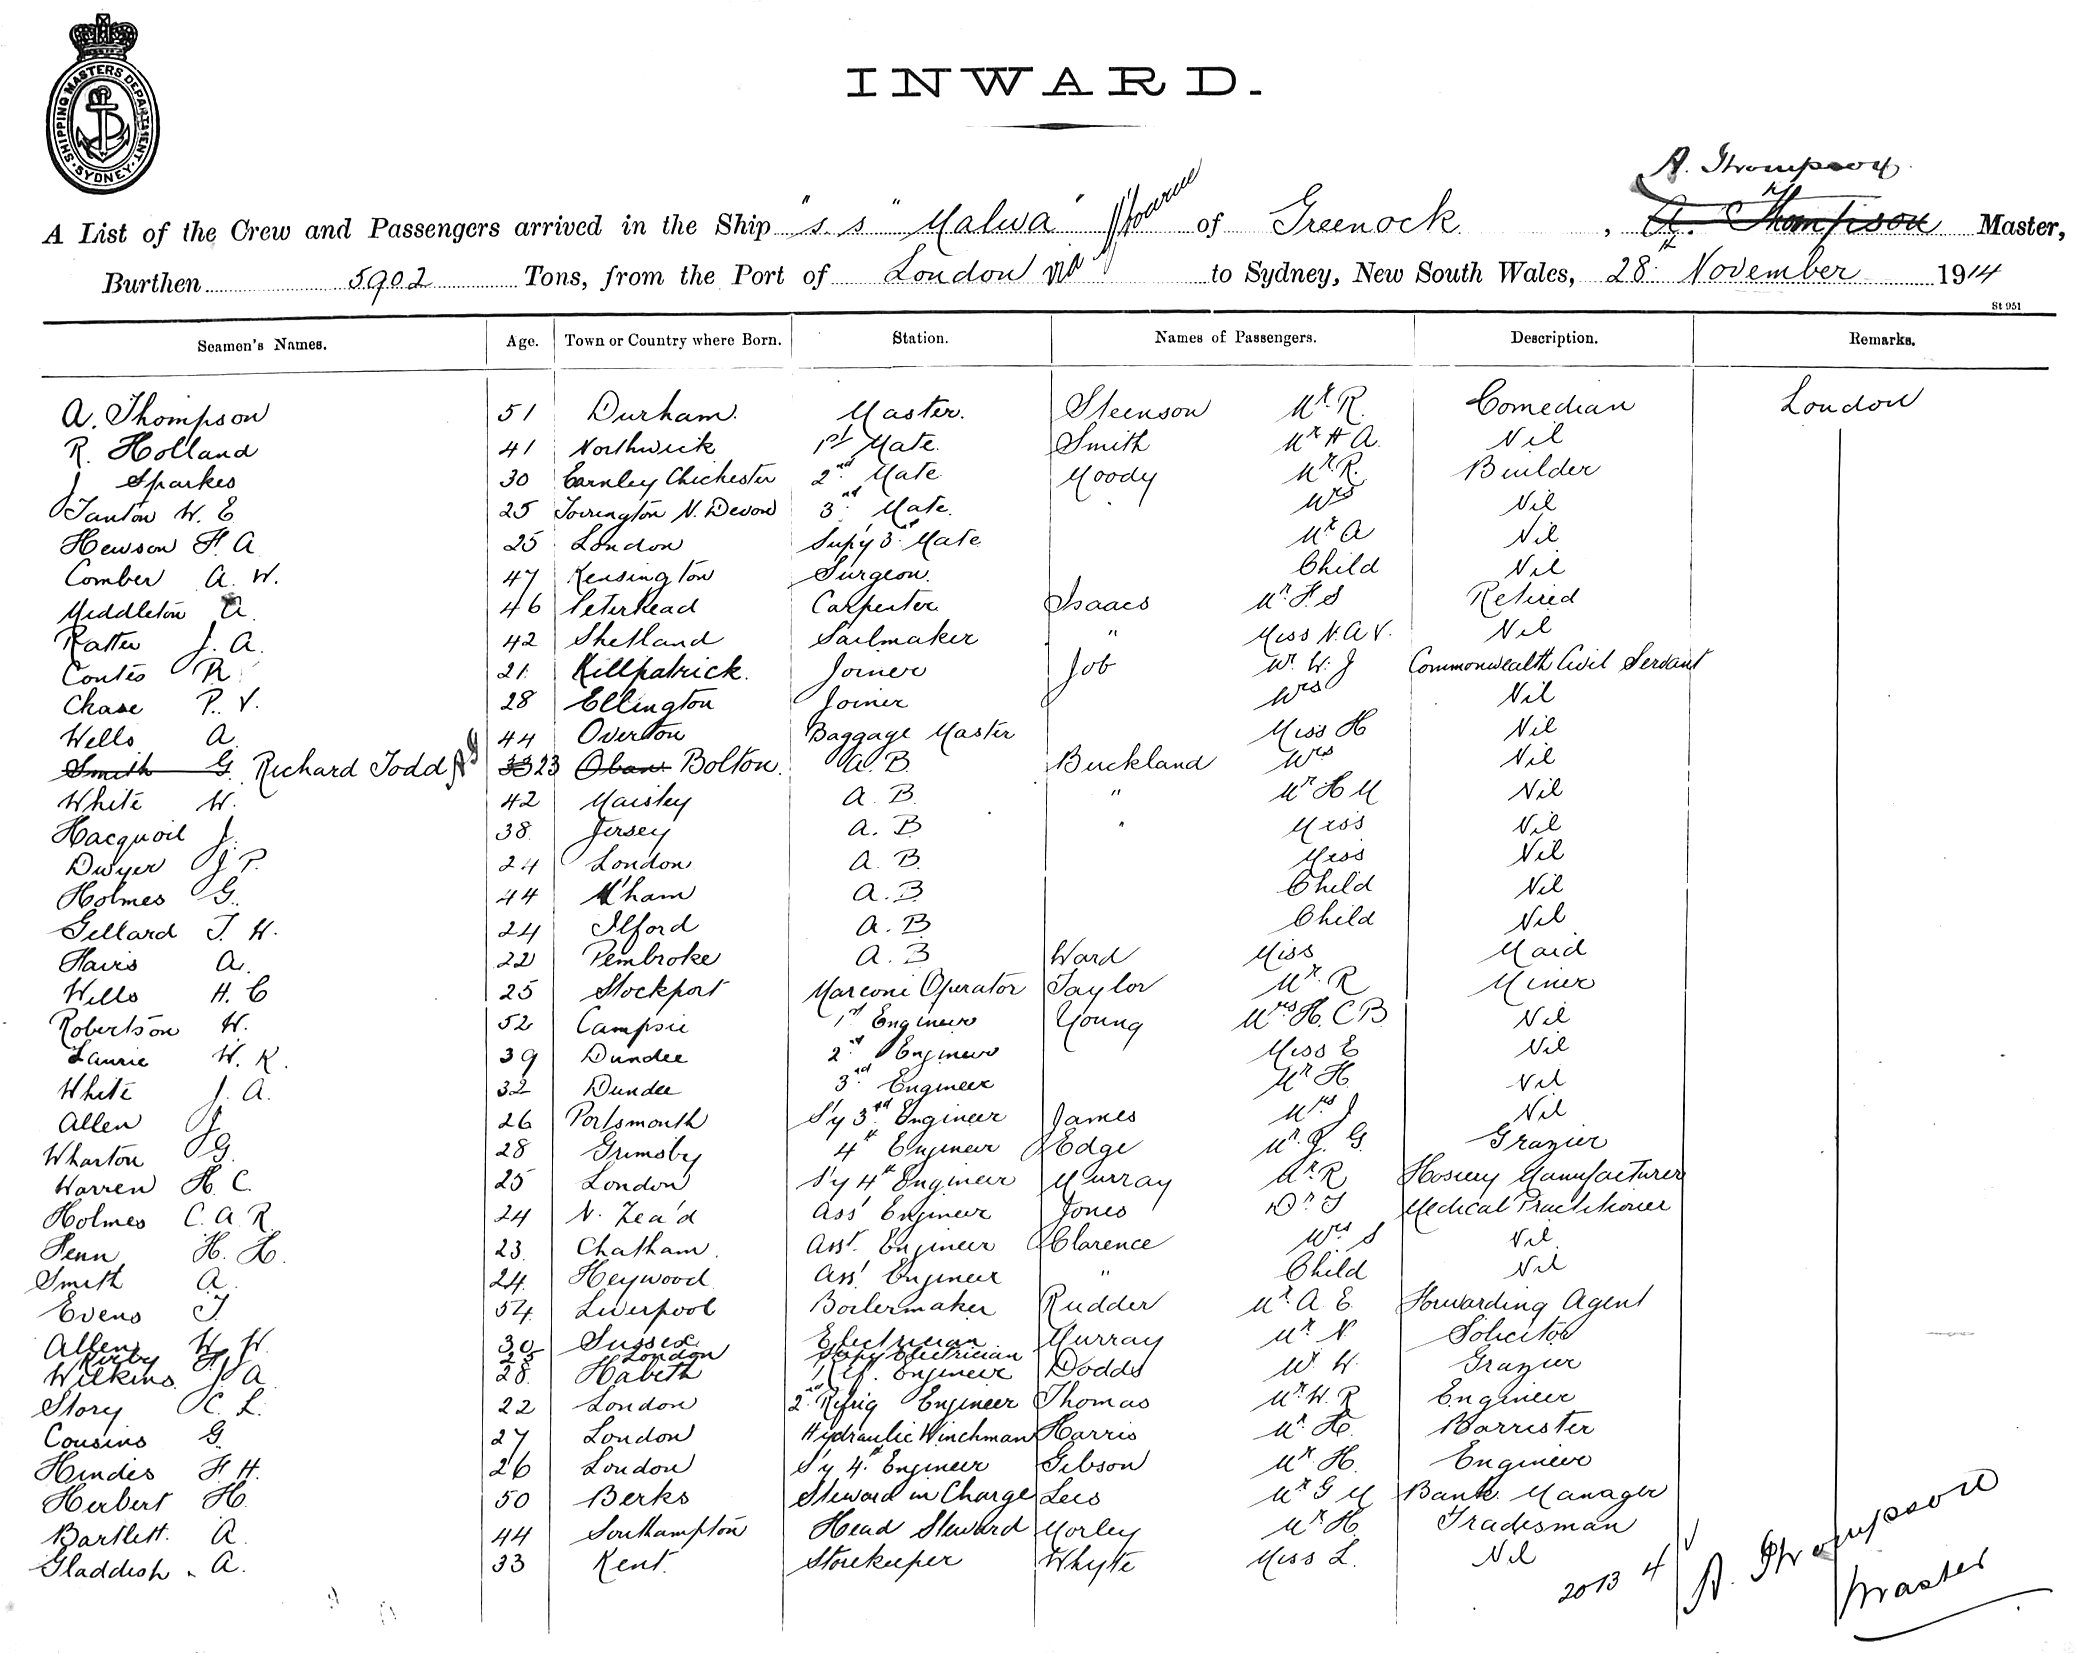 SHIPPING MASTERS DEPARTMENT. SYDNEY
INWARD.
A. Thompson
A List of the Crew and Passengers arrived in the Ship "s.s" Malwa" of Greenock, A. Thompson Master,
Burthen 5902 Tons, from the Port of London via to Sydney, New South Wales, 28th November 1914
St 951
Seamen's Names. Age. Town or Country where Born. Station. Names of Passengers. Description. Remarks.
A. Thompson 51 Durham. Master. Steenson Mr. R. Comedian London
R. Holland 41 Northwick 1st Mate. Smith Mr H A. Nil
J Sparkes 30 Earnley Chichester 2nd Mate Moody Mr. R. Builder
Tanton W. E. 25 Torrington N. Devon 3rd Mate. Mrs Nil
Hewson F. A 25 London Supy 3rd Mate Mr A Nil
Comber A. W. 47 Kensington Surgeon. Child Nil
Middleton A. 46 Peterhead Carpenter Isaacs Mr. F. S Retired
Ratter J. A. 42 Shetland Sailmaker " Miss N. A V. Nil
Contes R. 21 Killpatrick. Joiner Job Mr. W. J Commonwealth Civil Servant
Chase P. V. 28 Ellington Joiner Mrs Nil
Wells A 44 Overton Baggage Master Miss H Nil
Smith G. Richard Todd 33 23 Oban Bolton. A. B. Buckland Mrs Nil
White W. 42 Maisley A. B. " Mr H M Nil
Hacquoil J. 38. Jersey A. B " Miss Nil
Dwyer J. P. 24 London A. B. Miss Nil
Holmes G. 44 M'ham A. B Child Nil
Gellard T. H. 24 Ilford A. B Child Nil
Havis A. 22 Pembroke A. B Ward Miss Maid
Wells H. C 25 Stockport Marconi Operator Taylor Mr. R Miner
Robertson W. 52 Campsie 1st Engineer Young Mrs H. C B Nil
Laurie W. K. 39 Dundee 2nd Engineer Miss E Nil
White J. A. 32 Dundee 3rd Engineer Mr H Nil
Allen J 26 Portsmouth S'y 3rd Engineer James Mrs J Nil
Wharton G. 28 Grimsby 4th Engineer Edge Mr. J. G. Grazier
Warren H. C. 25 London S'y 4th Engineer Murray Mr R Hosiery Manufacturer
Holmes C. A. R. 24 N. Zea'd Asst Engineer Jones Dr T Medical Practitioner
Fenn H. H. 23. Chatham. Asst. Engineer Clarence Mrs S Nil
Smith A. 24. Heywood Asst Engineer " Child Nil
Evens T. 54. Liverpool Boilermaker Rudder Mr. A. E. Forwarding Agent
Allen W. W. 30 Sussex Electrician Murray Mr N Solicitor
Kirby F. 25 London Supy Electrician
Wilkins J A 28. 1 Ref. Engineer Dodds Mr W. Grazier
Story C. L. 22 London 2nd Refrig Engineer Thomas Mr. W. R Engineer
Cousins G. 27 London Hydraulic Winchman Harris Mr. H. Barrister
Hindes F. H. 26 London S'y 4th Engineer Gibson Mr H. Engineer
Herbert H. 50 Berks Steward in Charge Lees Mr G M Bank Manager
Bartlett. A. 44 Southampton Head Steward Morley Mr H. Tradesman
Gladdish A. 33 Kent. Storekeeper Whyte Miss L. Nil
2013 4
A. Thompson
Master